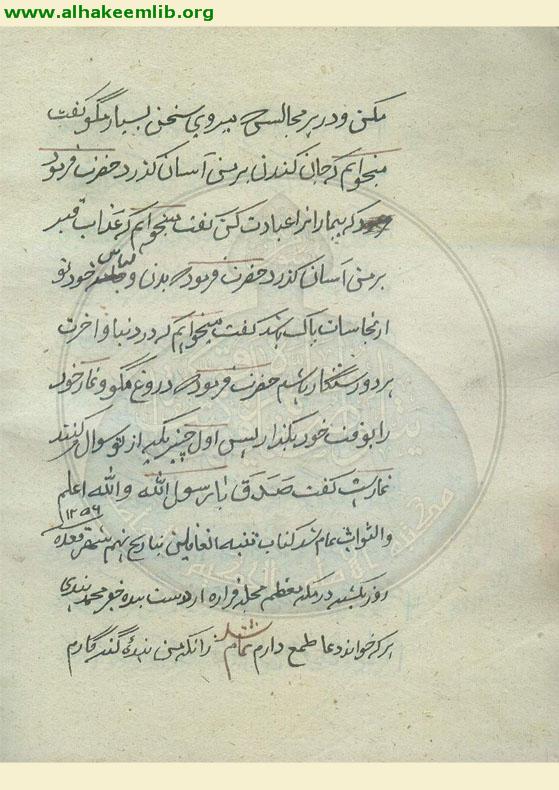 www.alhakeemlib.org
مکن و در هر مجالسی که میروی سخن بسیار مگو گفت
میخواهم که جان کندن بر من آسان گذرد حضرت فرمود
که بیمارانرا عیادت کن گفت میخواهم که عذاب قبر
بر من آسان گذرد حضرت فرمود که بدن و لباس خود تو
از نجاسات پاک گفت میخواهم که در دنیا و آخرت
هر دو رستگار باشم حضرت فرمود که دروغ مگو و نماز خود
را بوقت خود بگذار پس اول چیزیکه از تو سوال میکنند
نماز است گفت صدق یا رسول الله والله اعلم
والثواب تمام شد کتاب تنبیه الغافلین بتاریخ نهم شهر قعده ۱۲۵۶
روز یکشنبه در مکه معظم محله از دست بنده محمد
هر که خواند دعا طمع دارم زانکه من بندهٔ گنه گارم
تمام شد